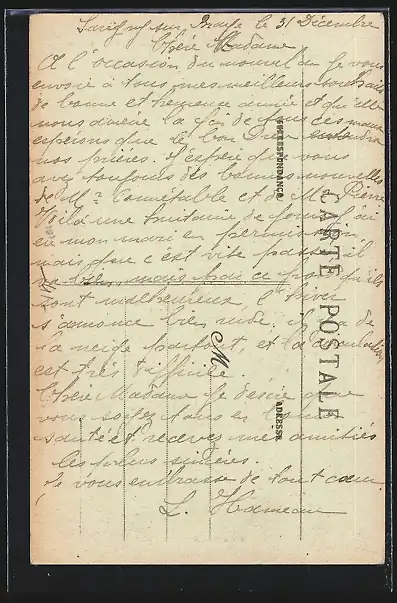 Savigny sur Braye le 31 Décembre
Chère Madame
A l'occasion du nouvel an je vous
envoie à tous mes meilleurs souhaits
de bonne et heureuse année et qu'elle
nous amène la fin de tous ces maux
espérons que le bon Dieu entendra
nos prières. J'espère que vous
avez toujours des bonnes nouvelles
de Mr Connétable et de Mr Pierre
Voilà une huitaine de jours j'ai
eu mon mari en permission
mais que c'est vite passé il
va bien mais ce qu'ils
sont malheureux, l'hiver
s'annonce bien rude. il y a de
la neige partout, et la circulation
est très difficile.
Chère Madame je désire que
vous soyez tous en bonne
santé et recevez mes amitiés
les plus sincères.
Je vous embrasse de tout cœur
L. Hameau
CARTE POSTALE
CORRESPONDANCE
ADRESSE
M